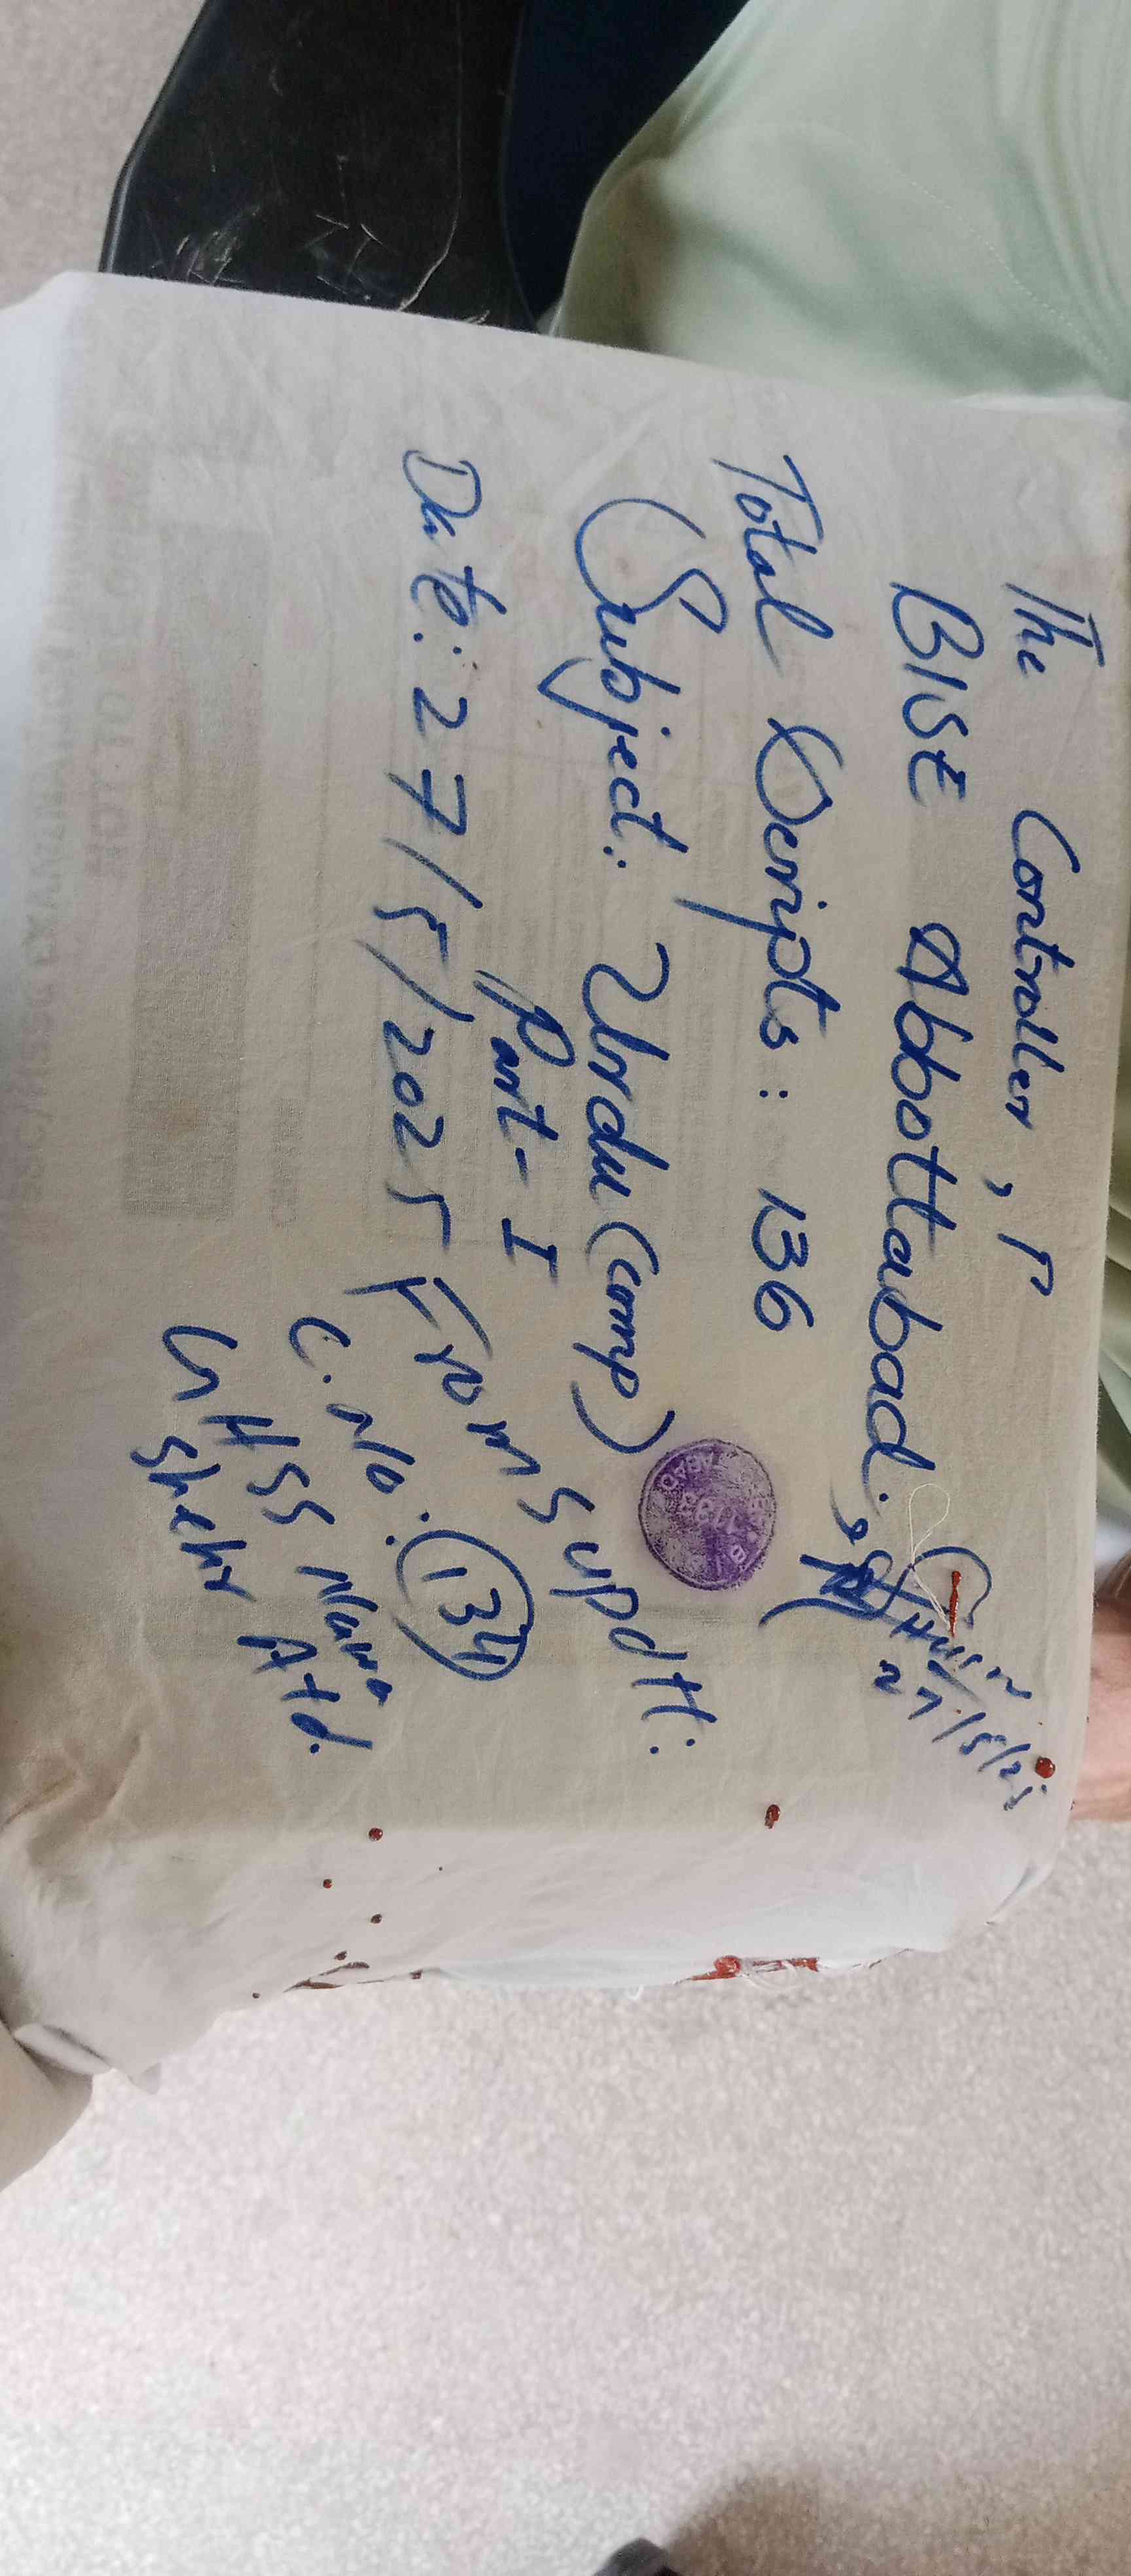 The Controller,
BISE Abbottabad.
27/5/25
Total Scripts: 136
Subject: Urdu (Comp)
Part-I
Date: 27/5/2025
From Supdt:
C.No. (134)
GHSS Nawa
Sheher Atd.